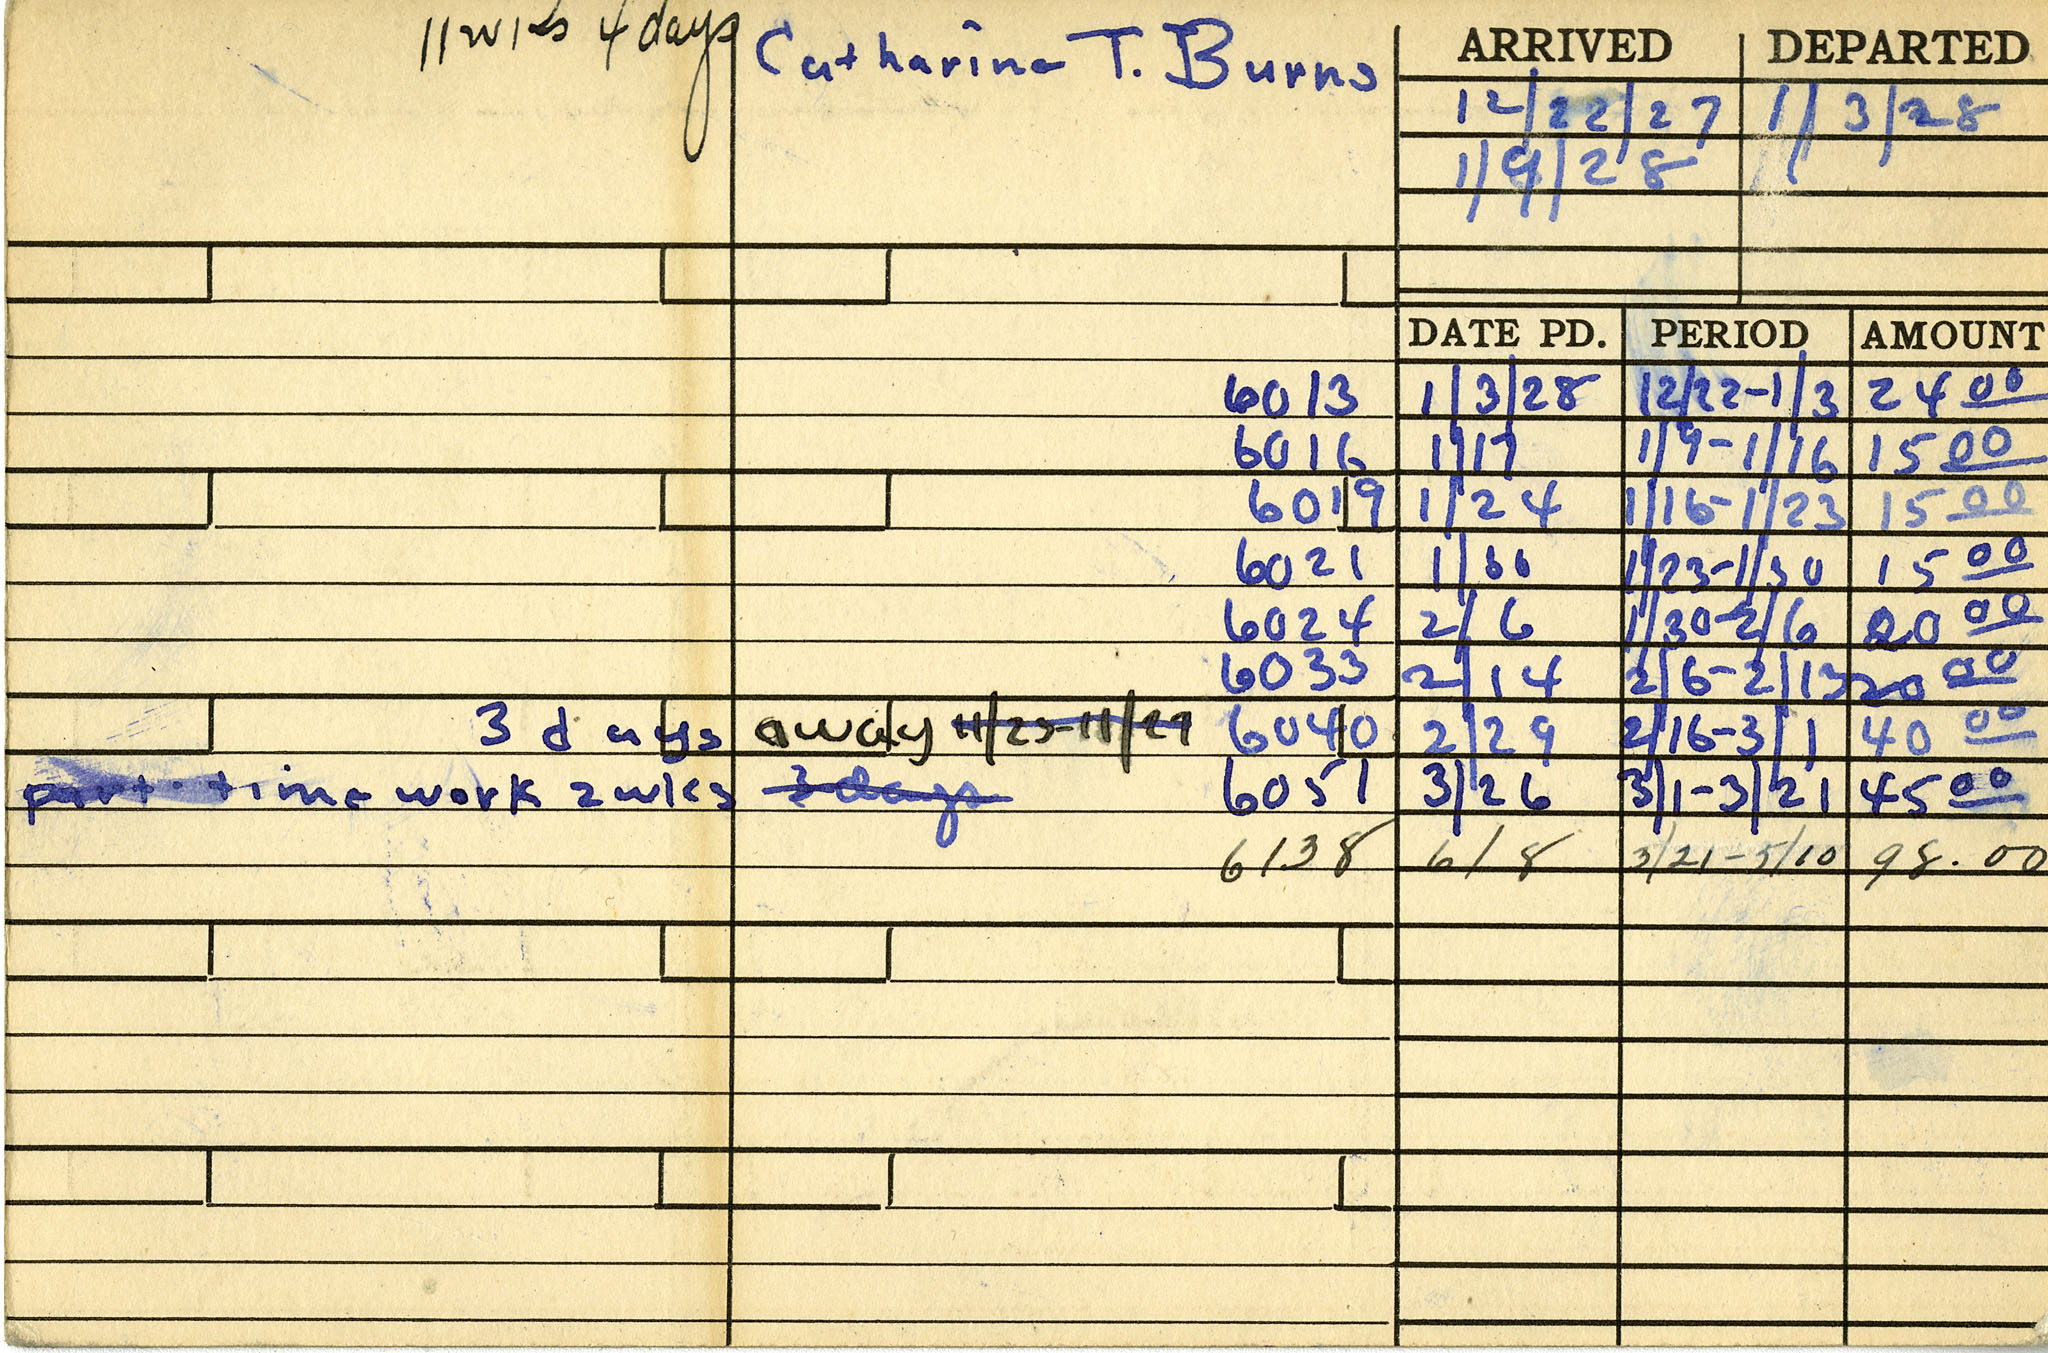 11 wks 4 days Catharine T. Burns ARRIVED DEPARTED
12/22/27 1/3/28
1/9/28
DATE PD. PERIOD AMOUNT
6013 1/3/28 12/22-1/3 24 00
6016 1/17 1/9-1/16 15 00
6019 1/24 1/16-1/23 15 00
6021 1/30 1/23-1/30 15 00
6024 2/6 1/30-2/6 20 00
6033 2/14 2/6-2/13 20 00
3 days away 11/25-11/29 6040 2/29 2/16-3/1 40 00
part-time work 2 wks 3 days 6051 3/26 3/1-3/21 45 00
6138 6/8 3/21-5/10 98.00